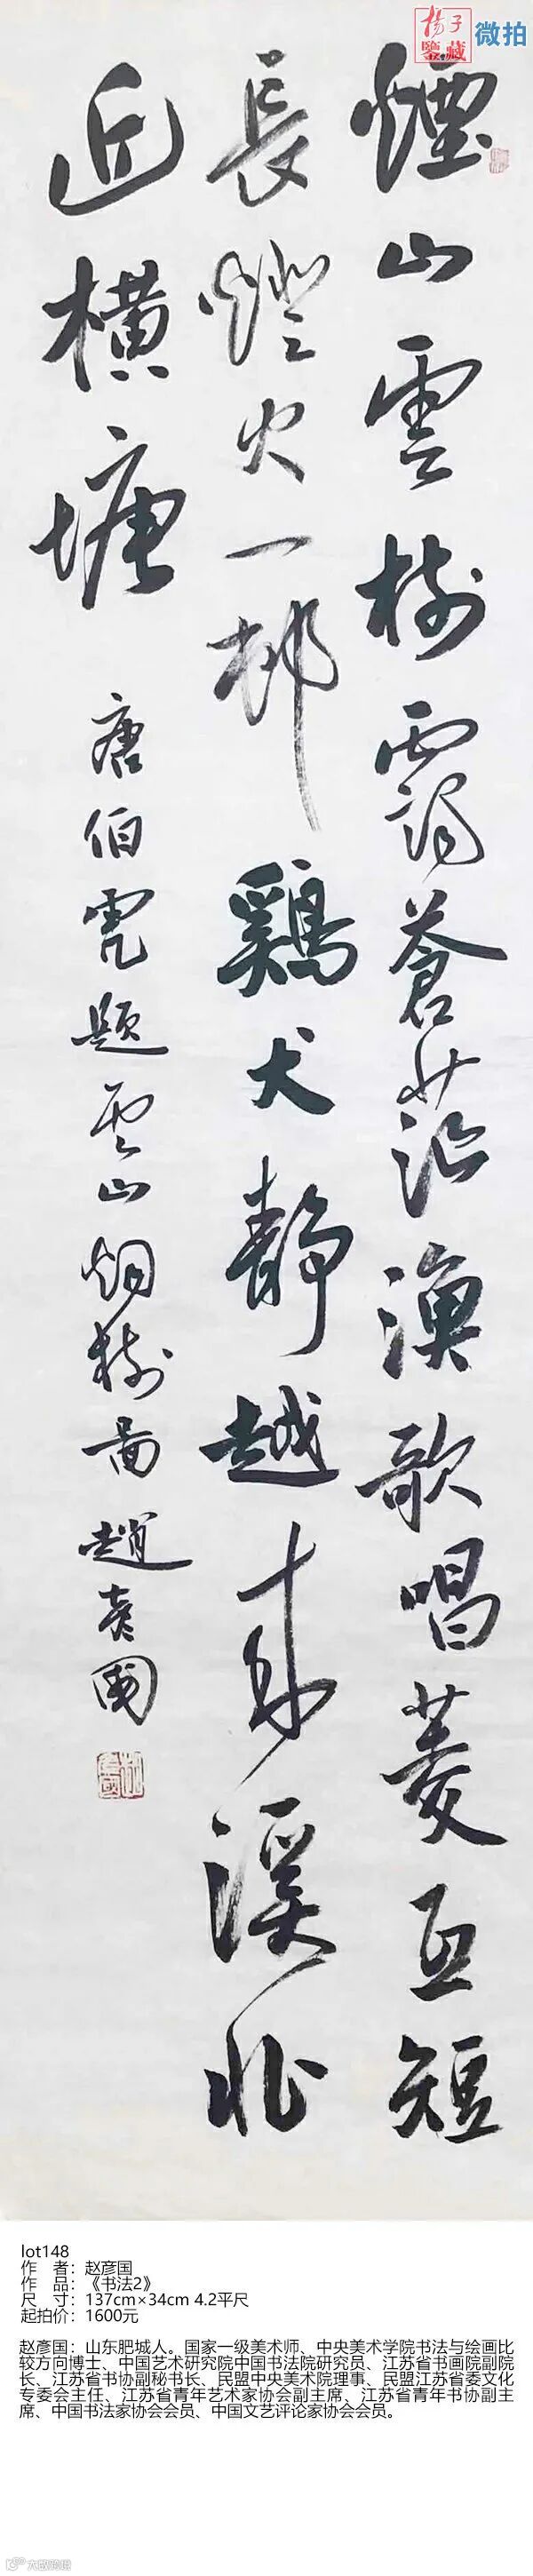 揚子
鑒藏
微拍
煙山雲樹靄蒼茫漁歌唱菱互短
長燈火一邨鷄犬靜越來溪北
近橫塘
唐伯虎題雲山烟樹圖 趙彥國
lot148
作 者：赵彦国
作 品：《书法2》
尺 寸：137cm×34cm 4.2平尺
起拍价：1600元
赵彦国：山东肥城人。国家一级美术师、中央美术学院书法与绘画比
较方向博士、中国艺术研究院中国书法院研究员、江苏省书画院副院
长、江苏省书协副秘书长、民盟中央美术院理事、民盟江苏省委文化
专委会主任、江苏省青年艺术家协会副主席、江苏省青年书协副主
席、中国书法家协会会员、中国文艺评论家协会会员。